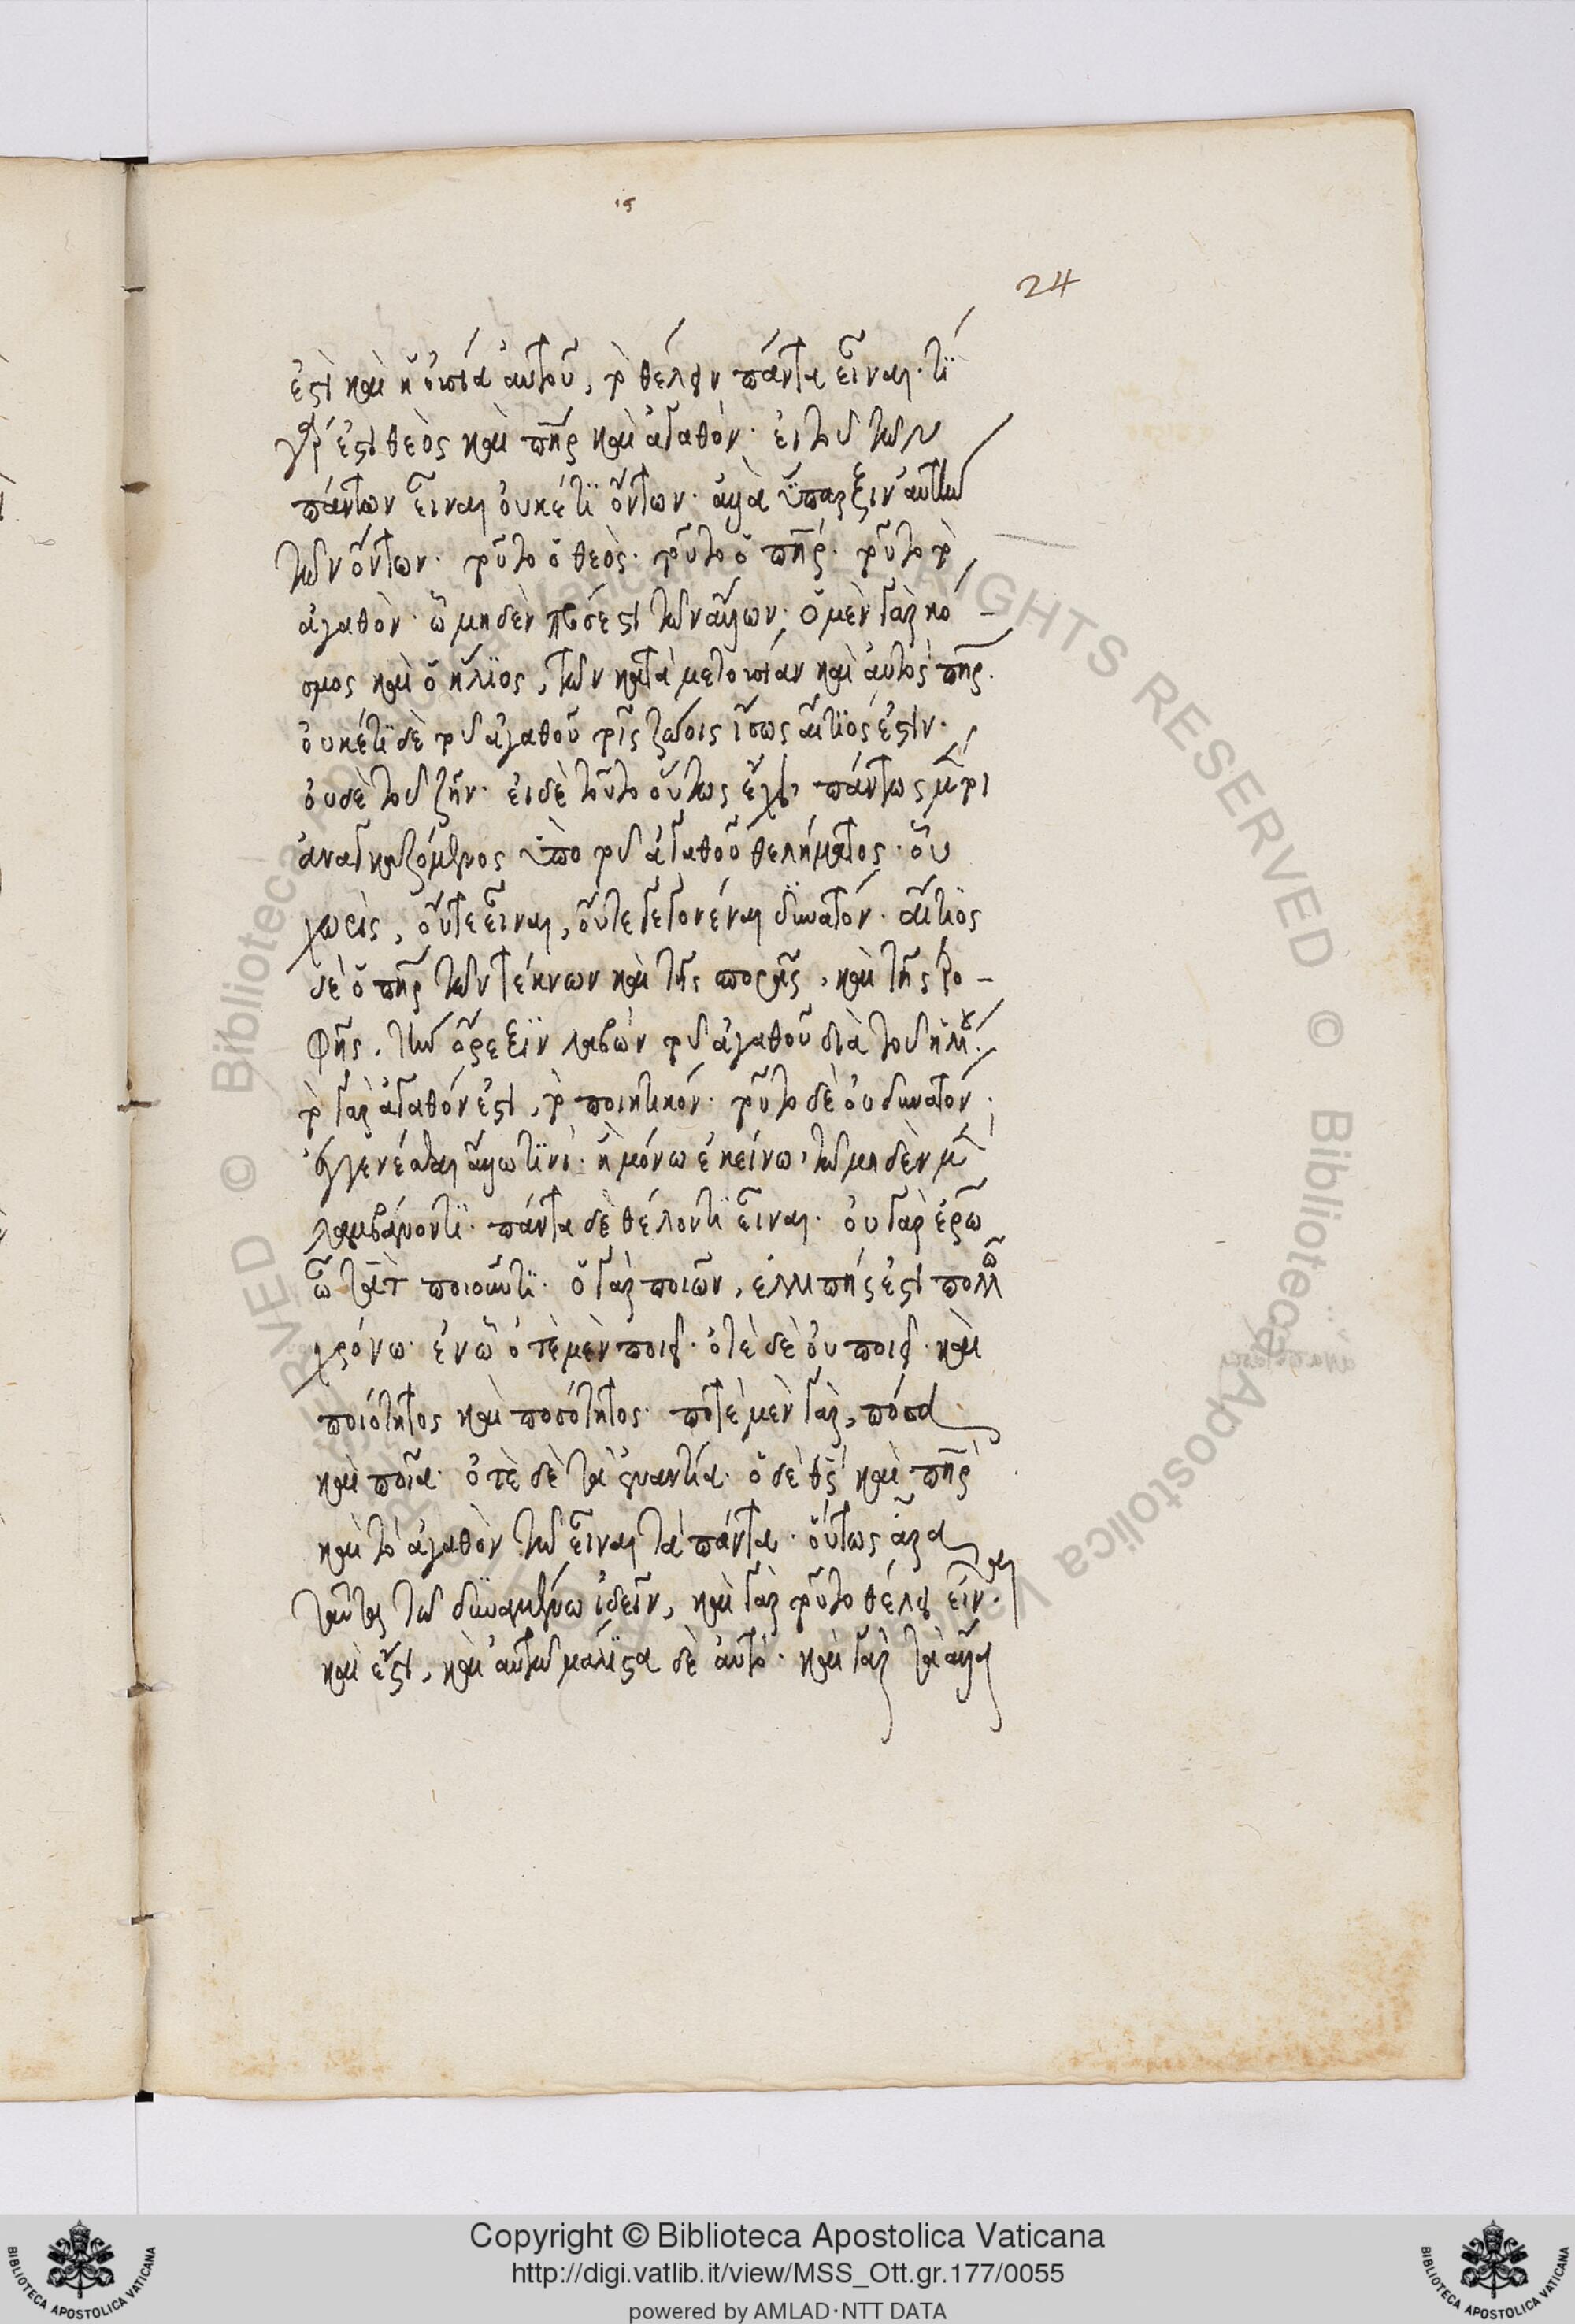 ις
24
ἐστὶ καὶ ἡ οὐσία αὐτοῦ, τὸ θέλειν πάντα εἶναι· τί
γάρ ἐστι θεὸς καὶ πηρ καὶ ἀγαθόν· εἰ τὸ τῶν
πάντων εἶναι οὐκέτι ὄντων· ἀλλὰ ὕπαρξιν αὐτῶν
τῶν ὄντων· τοῦτο ὁ θεὸς· τοῦτο ὁ πηρ· τοῦτο τὸ
ἀγαθὸν· ᾧ μηδὲν πρόσεστι τῶν ἄλλων· ὁ μὲν γὰρ κό-
σμος καὶ ὁ ἥλιος, τῶν κατὰ μετουσίαν καὶ αὐτὸς πηρ.
οὐκέτι δὲ τοῦ ἀγαθοῦ τοῖς ζώοις ἴσως αἴτιός ἐστιν·
οὐδὲ τοῦ ζῆν· εἰ δὲ τοῦτο οὕτως ἔχει, πάντως μέντοι
ἀναγκαζόμενος ὑπὸ τοῦ ἀγαθοῦ θελήματος· οὗ
χωρὶς, οὔτε εἶναι, οὔτε γεγονέναι δυνατόν· αἴτιος
δὲ ὁ πηρ τῶν τέκνων καὶ τῆς σπορᾶς, καὶ τῆς τρο-
φῆς, τὴν ὄρεξιν λαβὼν τοῦ ἀγαθοῦ διὰ τοῦ ἡλίου·
τὸ γὰρ ἀγαθόν ἐστι, τὸ ποιητικόν· τοῦτο δὲ οὐ δυνατὸν
ἐγγενέσθαι ἄλλω τινί· ἢ μόνω ἐκείνω, τῶ μηδὲν μὲν
λαμβάνοντι· πάντα δὲ θέλοντι εἶναι· οὐ γὰρ ἐρῶ
ὦ τὰτ ποιοῦντι· ὁ γὰρ ποιῶν, ἐλλιπής ἐστι πολλῶ
χρόνω· ἐν ᾧ ὁτὲ μὲν ποιεῖ· ὁτὲ δὲ οὐ ποιεῖ· καὶ
ποιότητος καὶ ποσότητος· ποτὲ μὲν γὰρ, πόσα
καὶ ποῖα· ὁτὲ δὲ τὰ ἐναντία· ὁ δὲ θς καὶ πηρ
καὶ τὸ ἀγαθὸν τῶ εἶναι τὰ πάντα· οὕτως ἄρα
ταῦτα τῶ δυναμένω ἰδεῖν, καὶ γὰρ τοῦτο θέλει εἶναι·
καὶ ἔστι, καὶ αὐτῶ μάλιστα δὲ αὐτό· καὶ γὰρ τὰ ἄλλα
Copyright © Biblioteca Apostolica Vaticana
http://digi.vatlib.it/view/MSS_Ott.gr.177/0055
powered by AMLAD·NTT DATA